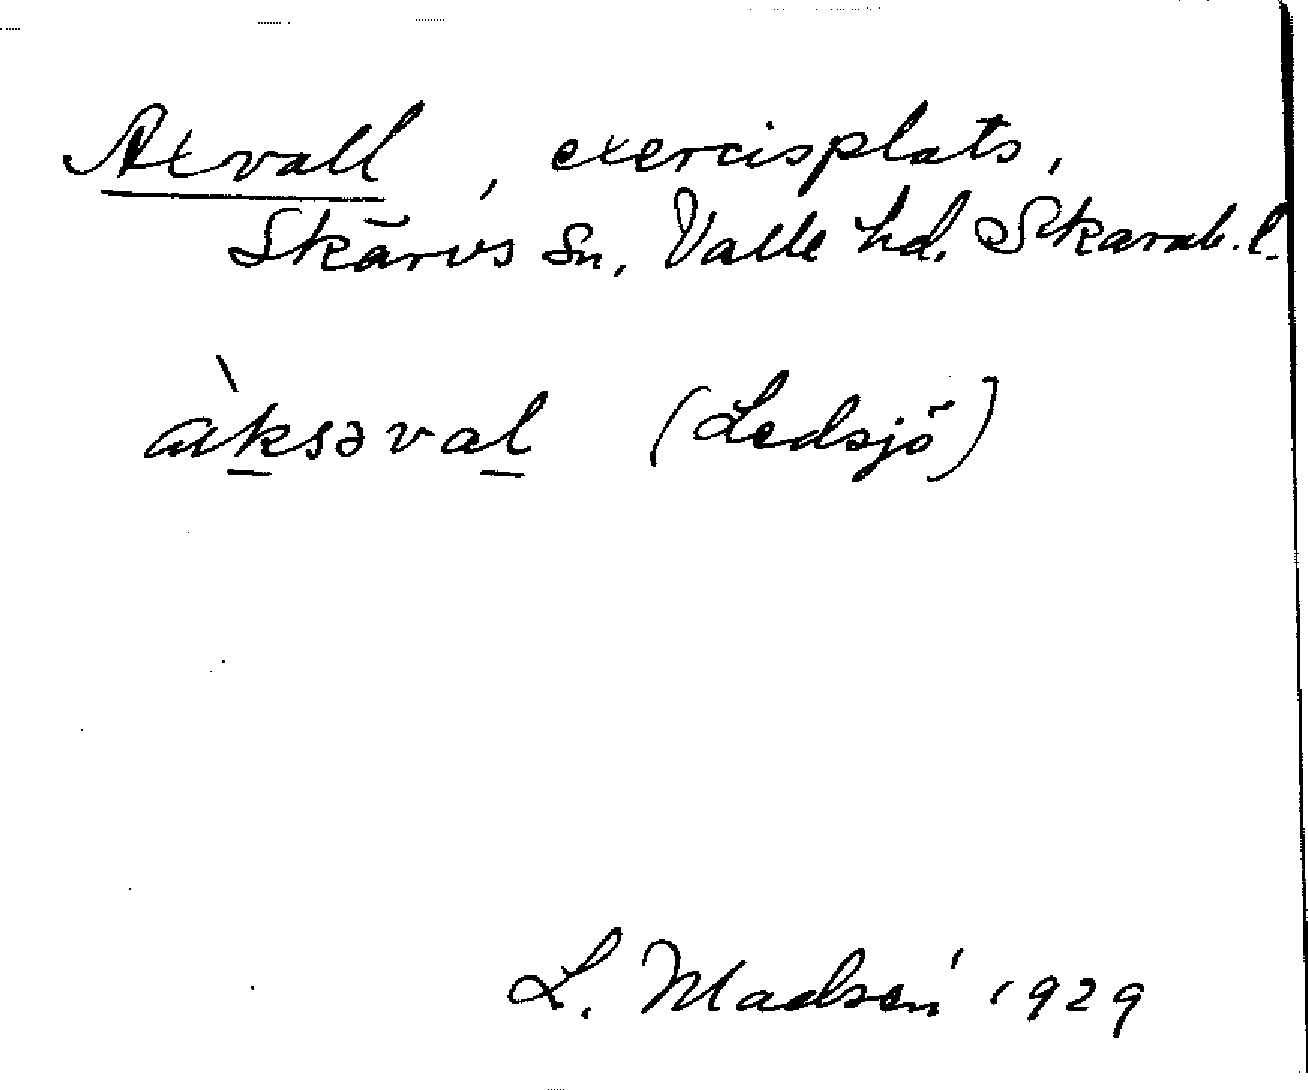 Axvall, exercisplats,
Skärvs sn, Valle hd. Skarab. l.
àksəval (Ledsjö)
L. Madsén 1929